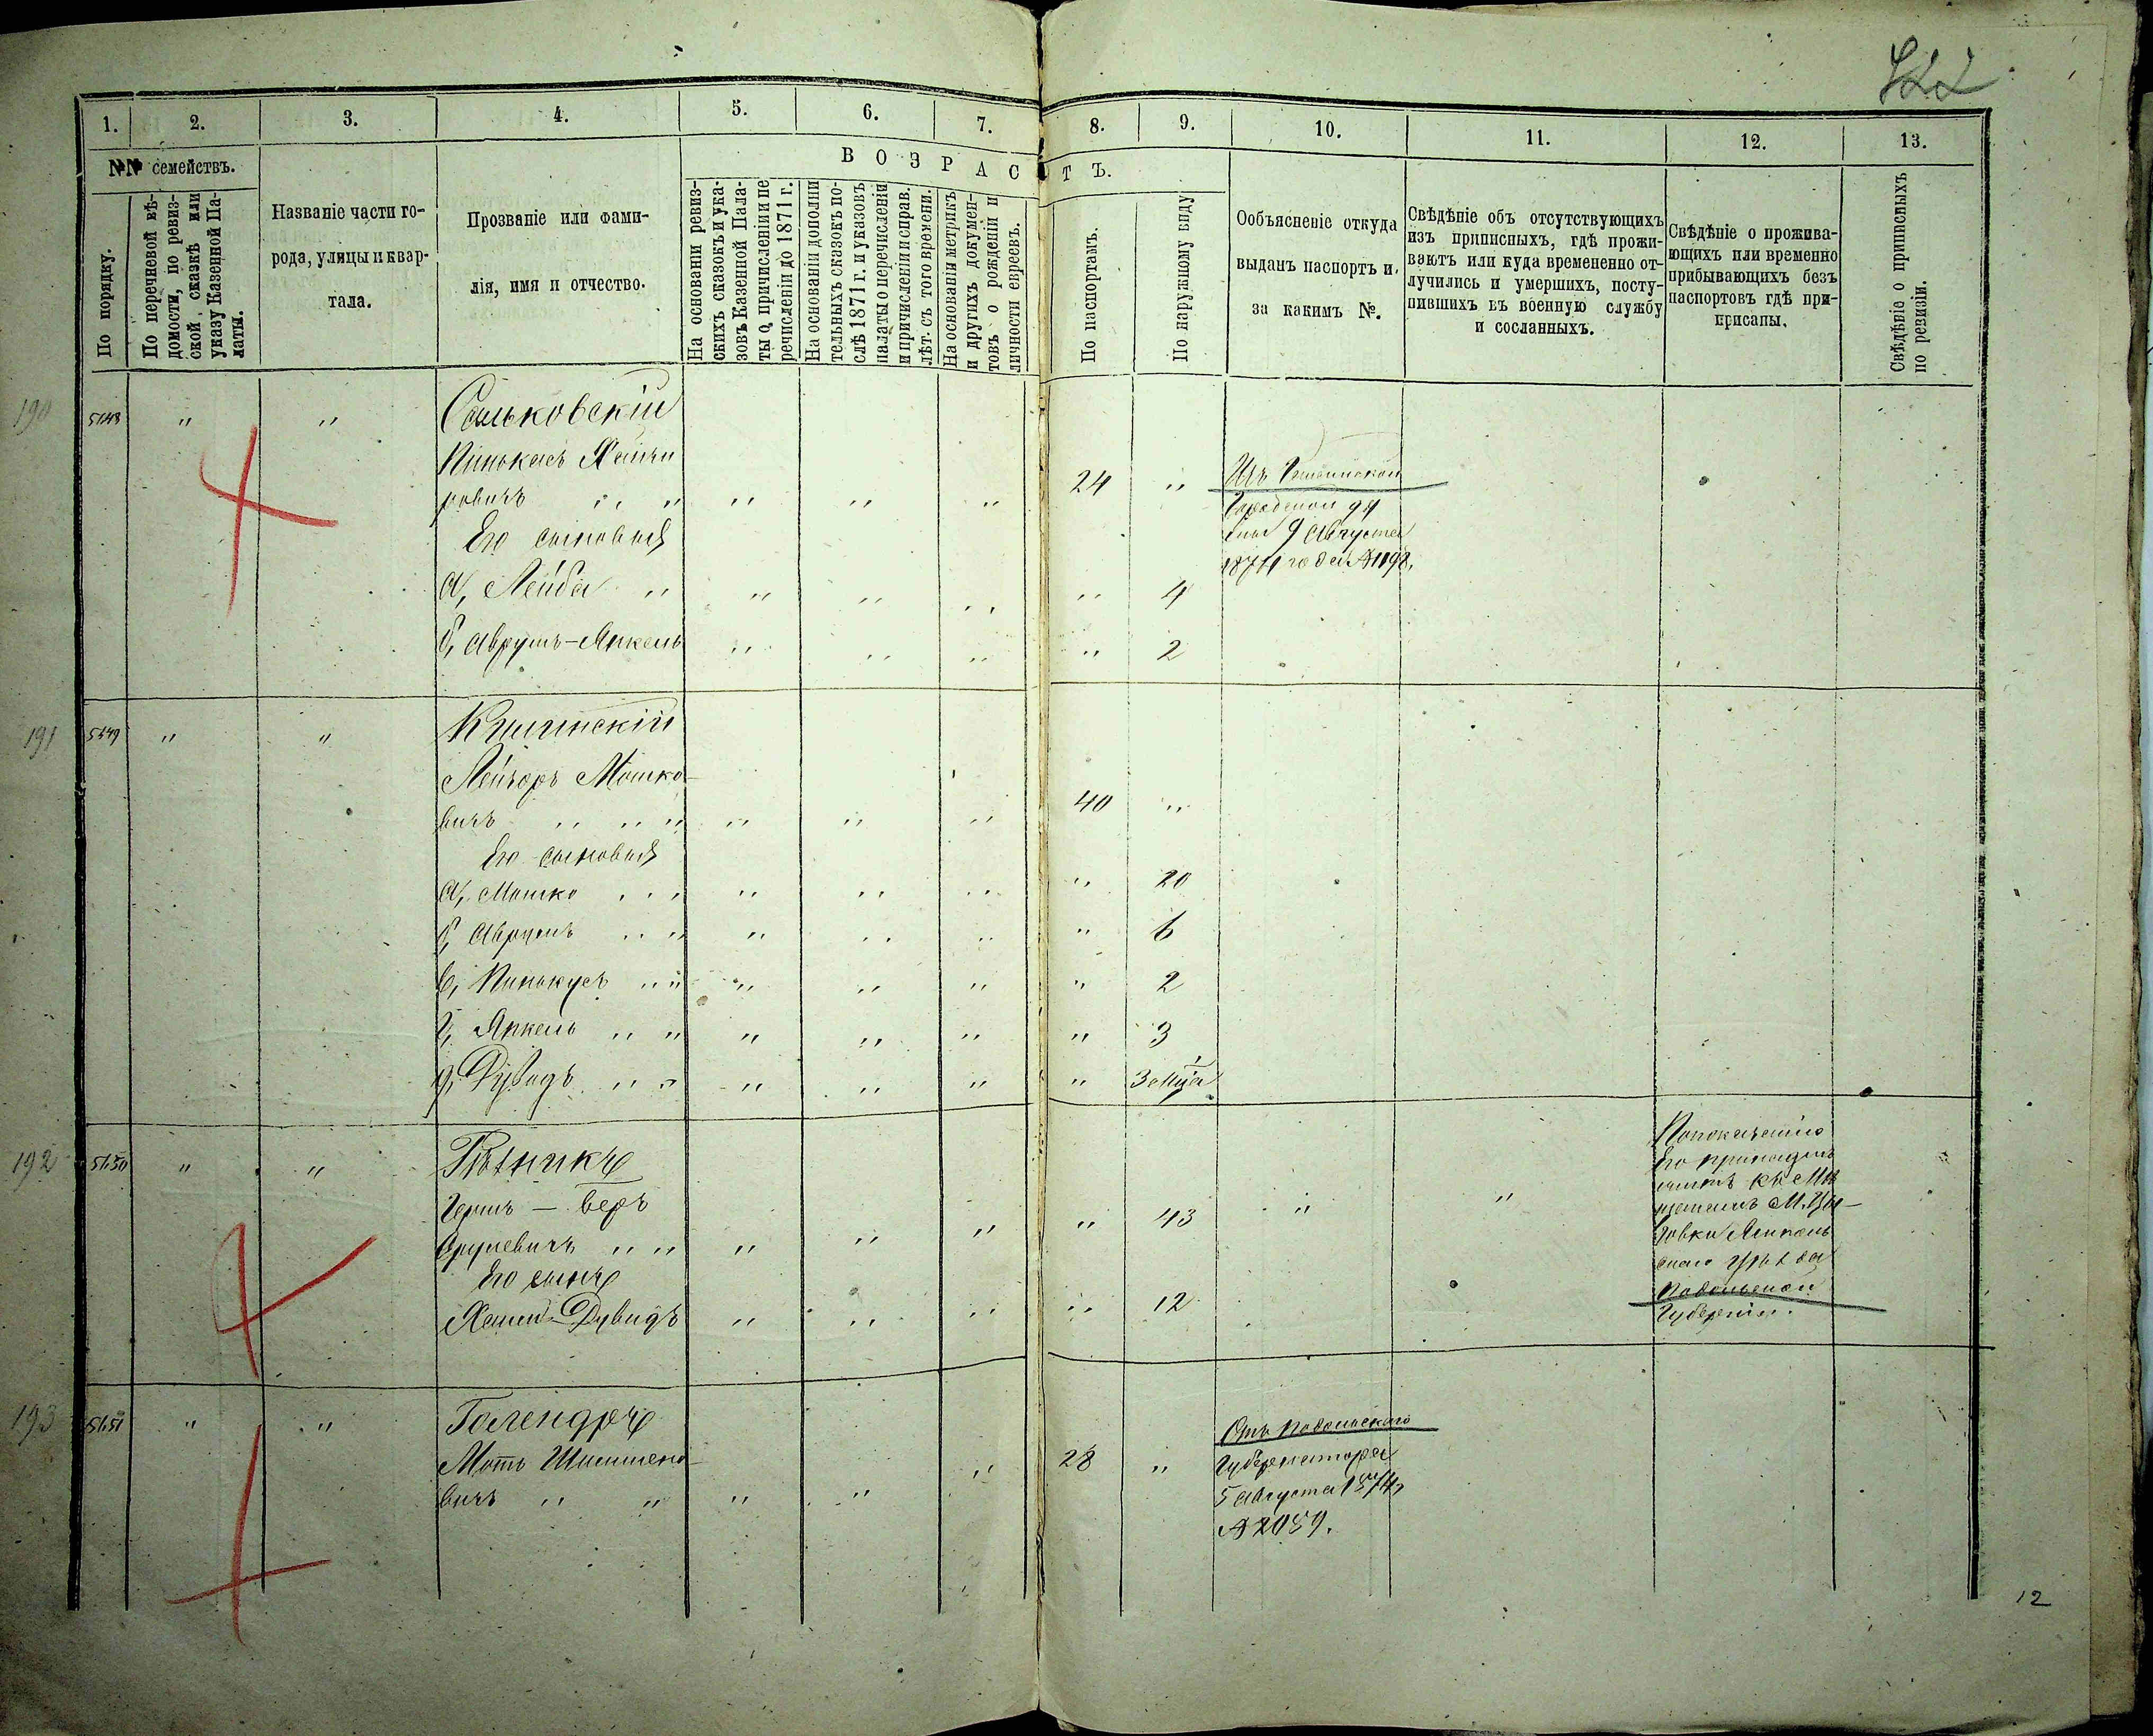 422
1. 2. 3. 4. 5. 6. 7. 8. 9. 10. 11. 12. 13.
№№ семействъ.
ВОЗРАСТЪ.
По порядку.
По перечневой вѣ-
домости, по ревиз-
ской, сказкѣ или
указу Казенной Па-
латы.
Названіе части го-
рода, улицы и квар-
тала.
Прозваніе или фами-
лія, имя и отчество.
На основаніи ревиз-
скихъ сказокъ и ука-
зовъ Казенной Пала-
ты о, причисленіи и пе
речисленіи до 1871 г.
На основаніи дополни
тельныхъ сказокъ по-
слѣ 1871 г. и указовъ
палаты о перечисленіи
и причисленіи и справ.
лѣт. съ того времени.
На основаніи метрикъ
и другихъ докумен-
товъ о рожденіи и
личности евреевъ.
По паспортамъ.
По наружному виду
Ообъясненіе откуда
выданъ паспортъ и
за какимъ №.
Свѣдѣніе объ отсутствующихъ
изъ приписныхъ, гдѣ прожи-
ваютъ или куда временно от-
лучились и умершихъ, посту-
пившихъ въ военную службу
и сосланныхъ.
Свѣдѣніе о прожива-
ющихъ или временно
прибывающихъ безъ
паспортовъ гдѣ при-
писаны.
Свѣдѣніе о приписныхъ
по ревизіи.
190 5148 " " Сальковскій
Пинькасъ Хаимъ
ровичъ " " " " " 24 "
Его сыновья
а, Лейба " " " " " 4
б, Аврумъ-Янкель " " " " 2
Городской ду
мы 9 Августа
1874 года №1198,
191 5149 " "
Лейзоръ Мошко-
вичъ " " " " " " 40 "
Его сыновья
а, Мошко " " " " " 20
б, Аврумъ " " " " " " 6
в, Пинькусъ " " " " " " 2
г, Янкель " " " " " " 3
д, Дувидъ " " " " " " 3 мѣс
192 5150 " "
Гершъ — Беръ
Срулевичъ " " " " " " 43 " "
Его сынъ
Хаимъ-Дувидъ " " " " 12
По показанію
Его принадле
житъ къ мѣ
щанамъ М.
скаго уѣзда
Подольской
Губерніи.
193 5151 " " Голендеръ
Мотъ
вичъ " " " " " 28 "
Отъ Подольскаго
Губернатора
5 августа 1874,
№ 2059.
12